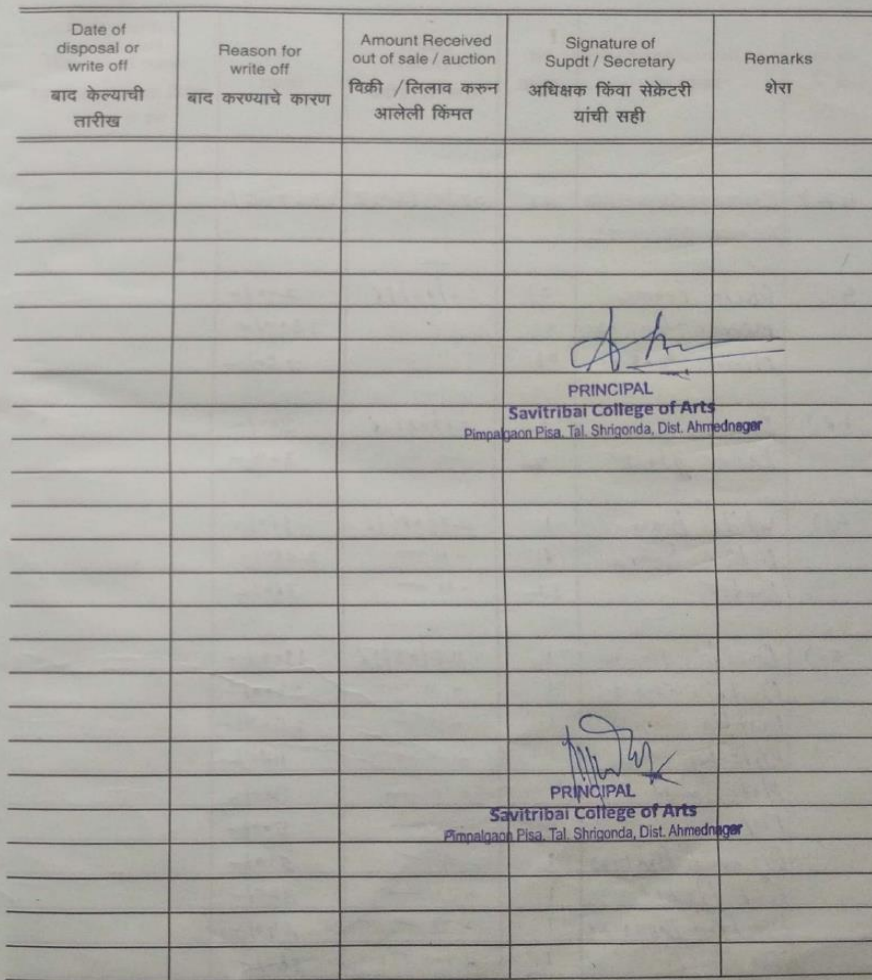 Date of
disposal or
write off
बाद केल्याची
तारीख
Reason for
write off
बाद करण्याचे कारण
Amount Received
out of sale / auction
विक्री /लिलाव करुन
आलेली किंमत
Signature of
Supdt / Secretary
अधिक्षक किंवा सेक्रेटरी
यांची सही
Remarks
शेरा
PRINCIPAL
Savitribai College of Arts
Pimpalgaon Pisa, Tal. Shrigonda, Dist. Ahmednagar
PRINCIPAL
Savitribai College of Arts
Pimpalgaon Pisa, Tal. Shrigonda, Dist. Ahmednagar